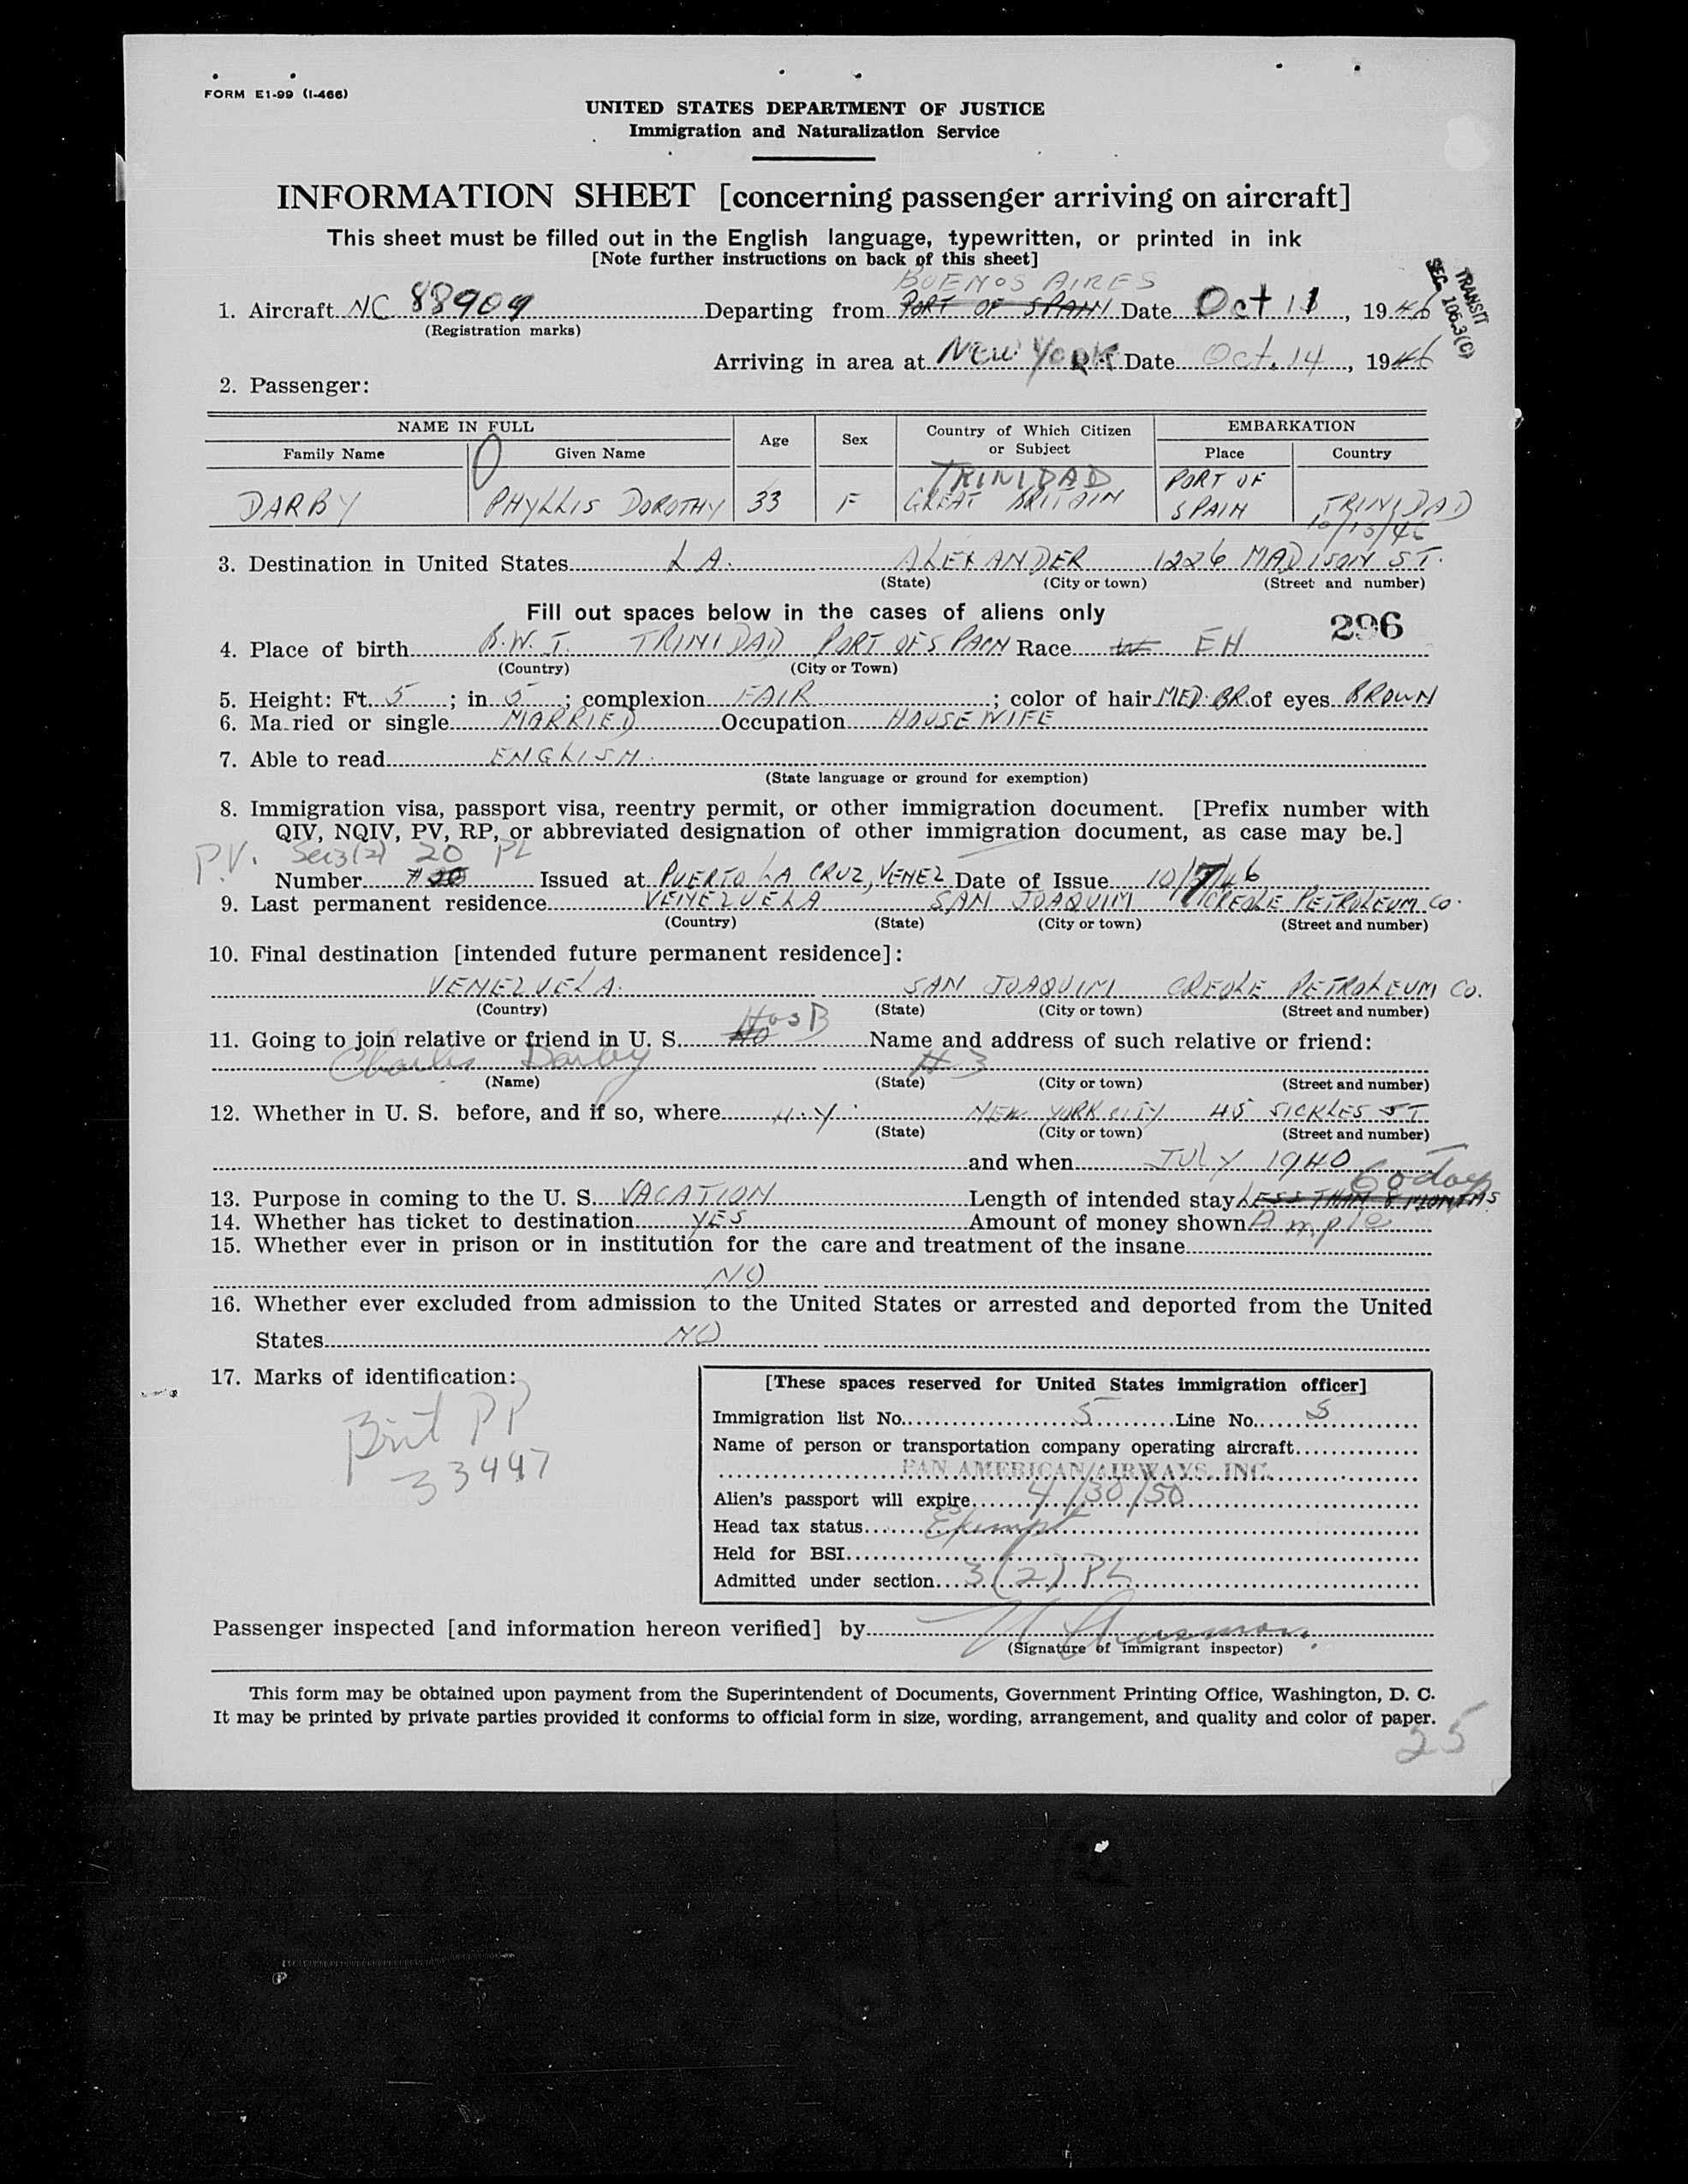 FORM E1-99 (I-466)
UNITED STATES DEPARTMENT OF JUSTICE
Immigration and Naturalization Service
INFORMATION SHEET [concerning passenger arriving on aircraft]
This sheet must be filled out in the English language, typewritten, or printed in ink
[Note further instructions on back of this sheet]
TRANSIT
SEC. 106.3(C)
BUENOS AIRES
1. Aircraft NC 88909 Departing from PORT OF SPAIN Date Oct 11, 1946
(Registration marks)
Arriving in area at New York Date Oct. 14, 1946
2. Passenger:
NAME IN FULL Age Sex Country of Which Citizen or Subject EMBARKATION
Family Name Given Name Place Country
TRINIDAD PORT OF
DARBY PHYLLIS DOROTHY 33 F GREAT BRITAIN SPAIN TRINIDAD
10/13/46
3. Destination in United States LA. ALEXANDER 1226 MADISON ST.
(State) (City or town) (Street and number)
Fill out spaces below in the cases of aliens only
296
4. Place of birth B.W.I. TRINIDAD PORT OF SPAIN Race W EH
(Country) (City or Town)
5. Height: Ft. 5; in 5; complexion FAIR; color of hair MED. BR. of eyes BROWN
6. Married or single MARRIED Occupation HOUSEWIFE
7. Able to read ENGLISH.
(State language or ground for exemption)
8. Immigration visa, passport visa, reentry permit, or other immigration document. [Prefix number with
QIV, NQIV, PV, RP, or abbreviated designation of other immigration document, as case may be.]
P.V. Sec 3(2) 20 PL
Number #20 Issued at PUERTO LA CRUZ, VENEZ Date of Issue 10/7/46
9. Last permanent residence VENEZUELA SAN JOAQUIM CREOLE PETROLEUM CO.
(Country) (State) (City or town) (Street and number)
10. Final destination [intended future permanent residence]:
VENEZUELA. SAN JOAQUIM CREOLE PETROLEUM CO.
(Country) (State) (City or town) (Street and number)
11. Going to join relative or friend in U. S. NO HusB Name and address of such relative or friend:
Charles Darby #3
(Name) (State) (City or town) (Street and number)
12. Whether in U. S. before, and if so, where N.Y. NEW YORK CITY 45 SICKLES ST
(State) (City or town) (Street and number)
and when JULY 1940
60 days
13. Purpose in coming to the U. S. VACATION Length of intended stay LESS THAN 8 MONTHS
14. Whether has ticket to destination YES Amount of money shown Ample
15. Whether ever in prison or in institution for the care and treatment of the insane
NO
16. Whether ever excluded from admission to the United States or arrested and deported from the United
States NO
17. Marks of identification:
Brit PP
33447
[These spaces reserved for United States immigration officer]
Immigration list No. 5 Line No. 5
Name of person or transportation company operating aircraft
PAN AMERICAN AIRWAYS, INC.
Alien's passport will expire 4/30/50
Head tax status Exempt
Held for BSI
Admitted under section 3(2) PL
Passenger inspected [and information hereon verified] by
(Signature of immigrant inspector)
This form may be obtained upon payment from the Superintendent of Documents, Government Printing Office, Washington, D. C.
It may be printed by private parties provided it conforms to official form in size, wording, arrangement, and quality and color of paper.
25